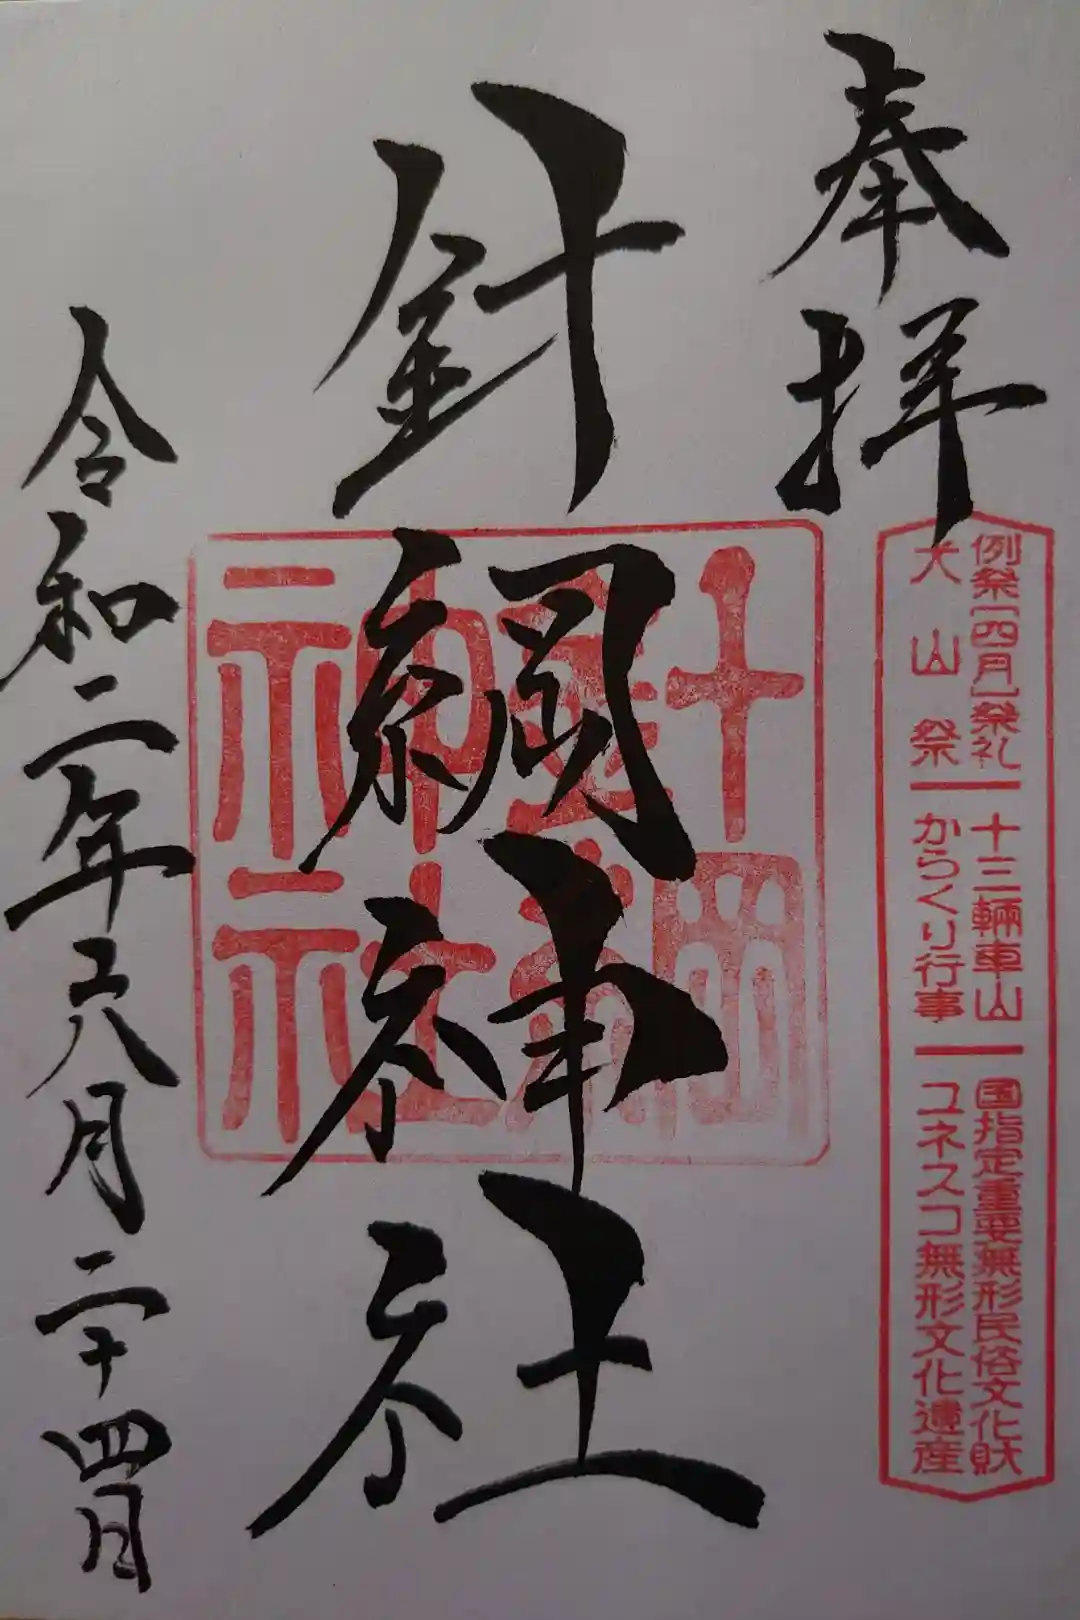 奉拝
例祭[四月]祭礼 十三輛車山 国指定重要無形民俗文化財
犬山祭 からくり行事 ユネスコ無形文化遺産
針綱神社
針綱神社
令和二年六月二十四日